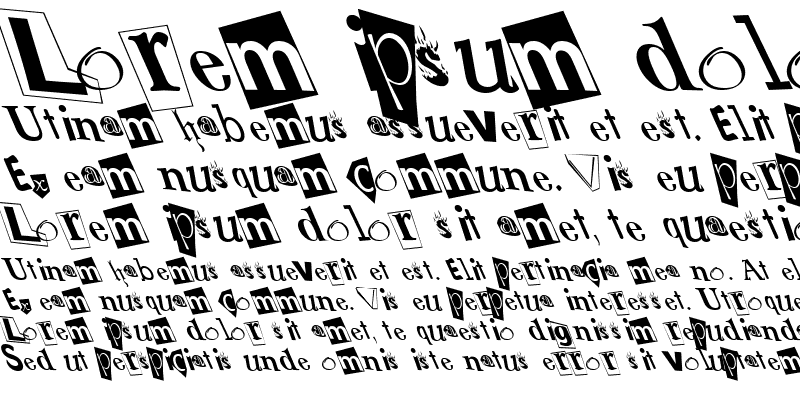 Lorem ipsum dolo
Utinam habemus assueverit et est. Elit p
Ex eam nusquam commune. Vis eu perp
Lorem ipsum dolor sit amet, te quaestio
Utinam habemus assueverit et est. Elit pertinacia mea no. At el
Ex eam nusquam commune. Vis eu perpetua interesset. Utroque
Lorem ipsum dolor sit amet, te quaestio dignissim repudianda
Sed ut perspiciatis unde omnis iste natus error sit voluptatem